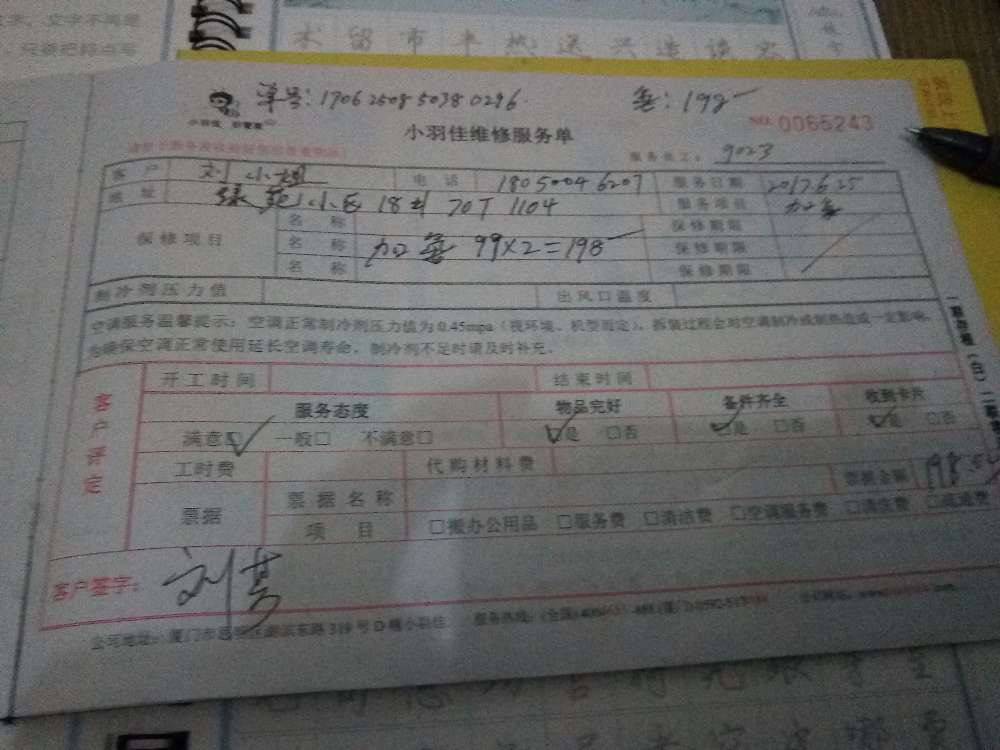 文字不再是
只要把每点写
术 留 市 半 热 送 兴 造 该 农
单号: 170625085038 0296
氟: 198
小羽佳维修服务单
NO. 0065243
服务技工: 9023
客户 刘小姐 电话 18050046207 服务日期 2017.6.25
地址 绿苑小区 18# 707 1104 服务项目 加氟
保修项目 名称 保修期限
名称 加氟 99×2=198 保修期限
名称 保修期限
制冷剂压力值 出风口温度
空调服务温馨提示: 空调正常制冷剂压力值为0.45mpa (视环境、机型而定), 拆装过程会对空调制冷或制热造成一定影响,
为确保空调正常使用延长空调寿命, 制冷剂不足时请及时补充。
客户评定
开工时间 结束时间
服务态度 物品完好 备件齐全 收到卡片
满意□ 一般□ 不满意□ □是 □否 □是 □否 □是 □否
工时费 代购材料费
票据 票据名称 票据金额 198
项目 □搬办公用品 □服务费 □清洁费 □空调服务费 □清洗费 □疏通费
客户签字: 刘
公司地址: 厦门市思明区湖滨东路319号D幢小羽佳 服务热线: (全国)400 (厦门)0592
一联存根(白)二联